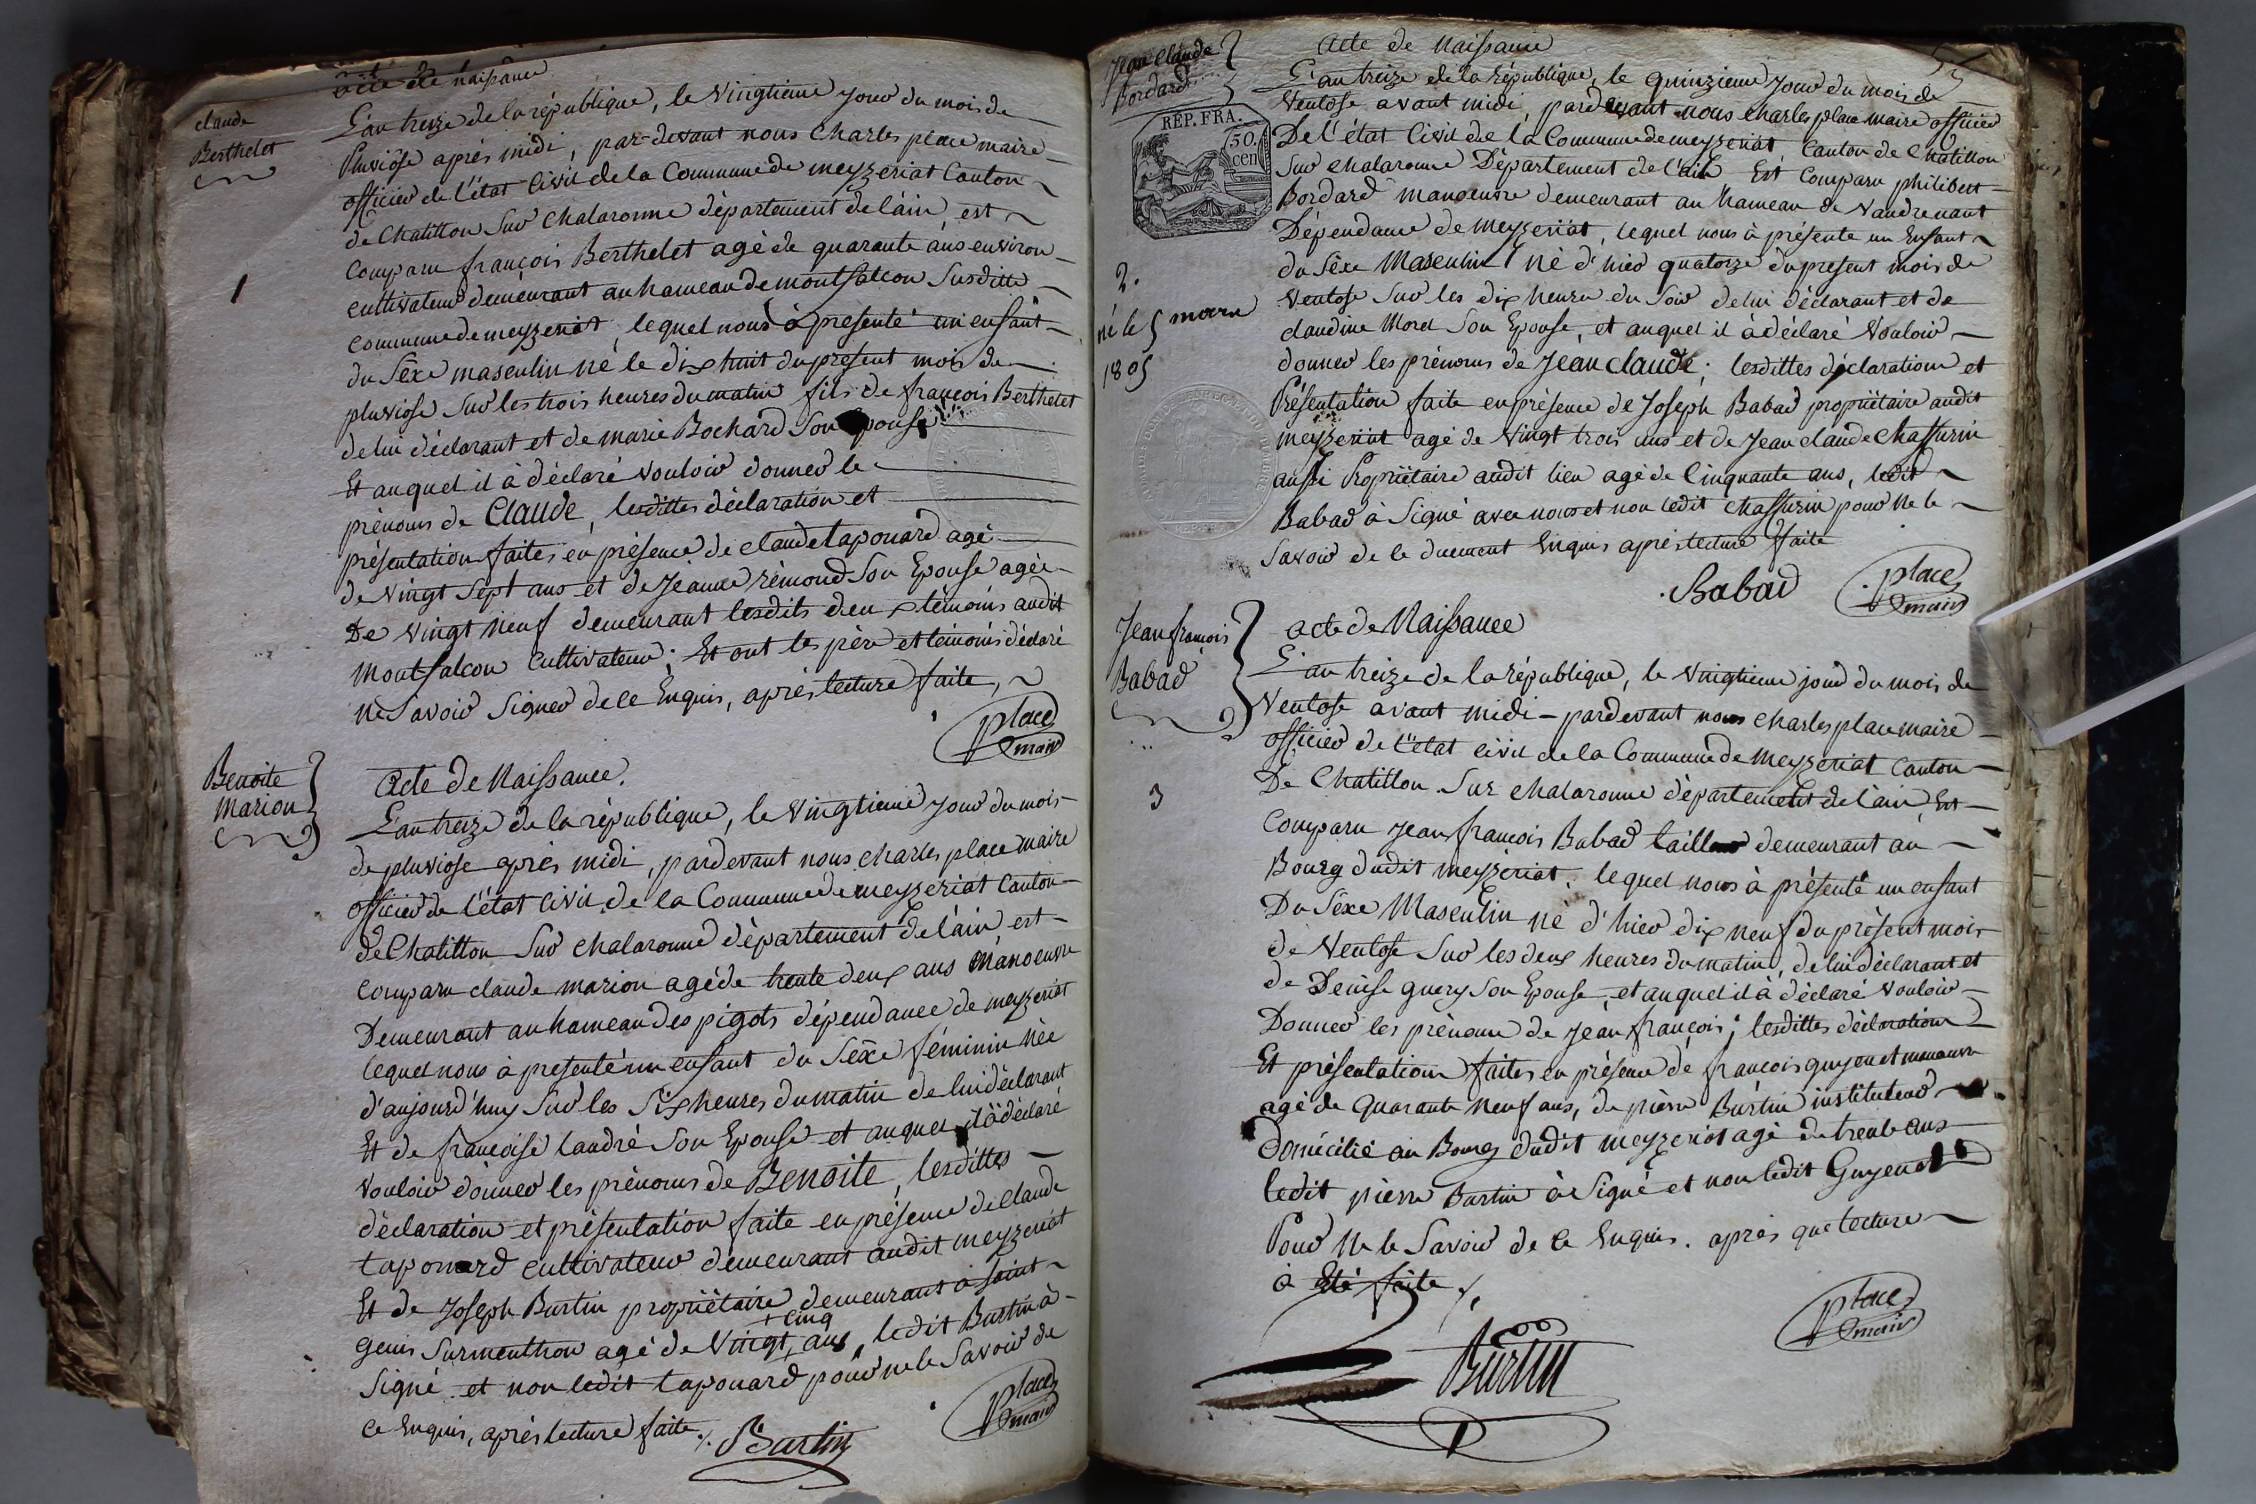 claude
Berthelet
1
acte de naissance
L'an treize de la république, le vingtieme jour du mois de
Pluviôse après midi, par-devant nous Charles place maire
officier de l'état Civil de la Commune de meyzeriat Canton
de Chatillon sur chalaronne département de l'ain, est
comparu françois Berthelet agé de quarante ans environ
cultivateur demeurant au hameau de montfalcon Susditte
commune de meyzeriat, lequel nous à présenté un enfant
du Sèxe masculin né le dix huit du présent mois de
pluviose sur les trois heures du matin fils de françois Berthelet
de lui déclarant et de marie Bochard Son Epouse
Et auquel il à déclaré vouloir donner le
prénoms de Claude, lesdittes déclaration et
présentation faites en présence de claude tapouard agé
de vingt sept ans et de jeanne rémond Son Epouse agée
De vingt neuf demeurant lesdits deux témoins audit
Montfalcon cultivateur; Et ont les père et témoins déclaré
ne Savoir Signer de ce Enquis, après lecture faite,
place
maire
Benoite
Marion
Acte de Naissance.
L'an treize de la république, le vingtieme jour du mois
de pluviose après midi, pardevant nous charles place maire
officier de l'état Civil de la Commune de meyzeriat Canton
de Chatillon Sur chalaronne département de l'ain, est
comparu claude marion agé de trente deux ans manoeuvre
Demeurant au hameau des pigots dépendance de meyzeriat
lequel nous à présenté un enfant du Sèxe féminin née
d'aujourd'huy Sur les Six heures du matin de lui déclarant
Et de françoise landré Son Epouse et auquel il à déclaré
vouloir donner les prénoms de Benoite, lesdittes
déclaration et présentation faite en présence de claude
tapouard cultivateur demeurant audit meyzeriat
Et de Joseph Burtin propriétaire demeurant à Saint
+ cinq
genis Surmenthon agé de Vingt, ans, ledit Burtin à
Signé et non ledit tapouard pour ne le Savoir de
ce Enquis, après lecture faite ./.
Burtin
place
maire
Jean Claude
Bordard
RÉP. FRA.
50.
cen
2.
né le 5 mars
1805
Acte de Naissance
L'an treize de la république, le quinzieme jour du mois de
Ventose avant midi, pardevant nous charles place maire officier
De l'état Civil de la Commune de meyzeriat, Canton de Chatillon
Sur chalaronne Département de l'ain Est Comparu philibert
Bordard manoeuvre demeurant au hameau de Vandrenant
Dépendance de meyzeriat, lequel nous à présenté un Enfant
du Sèxe Masculin né d'hier quatorze du présent mois de
Ventose Sur les dix heure du Soir de lui déclarant et de
claudine Morel Son Epouse, et auquel il à déclaré Vouloir
donner les prénoms de Jean claude; lesdittes déclarations et
Présentation faite en présence de Joseph Babad propriétaire audit
meyzeriat agé de Vingt trois ans et de Jean claude Chaffurin
aussi Propriétaire audit lieu agé de Cinquante ans, ledit
Babad à Signé avec nous et non ledit Chaffurin pour Ne le
Savoir de le duement Enquis après lecture faite
Babad
place
maire
Jean françois
Babad
3
acte de Naissance
L'an treize de la république, le vingtieme jour du mois de
Ventose avant midi - pardevant nous charles place maire
officier de l'état civil de la Commune de meyzeriat Canton
De Chatillon Sur chalaronne département de l'ain, Est
Comparu jean françois Babad tailleur demeurant au
Bourg dudit meyzeriat, lequel nous à présenté un enfant
Du Sèxe Masculin né d'hier dix neuf du présent mois
de Ventose Sur les deux heures du matin, de lui déclarant et
de Denise guery Son Epouse, et auquel il à déclaré vouloir
Donner les prénoms de jean françois; lesdittes déclaration
Et présentation faites en présence de françois guyenet manoeuvre
agé de quarante neuf ans, de pierre Burtin instituteur
domicilié au Bourg dudit meyzeriat agé de trente ans
ledit pierre Burtin à Signé et non ledit Guyenet
Pour Ne le Savoir de ce Enquis. après que lecture
à été faite ./.
Burtin
place
maire